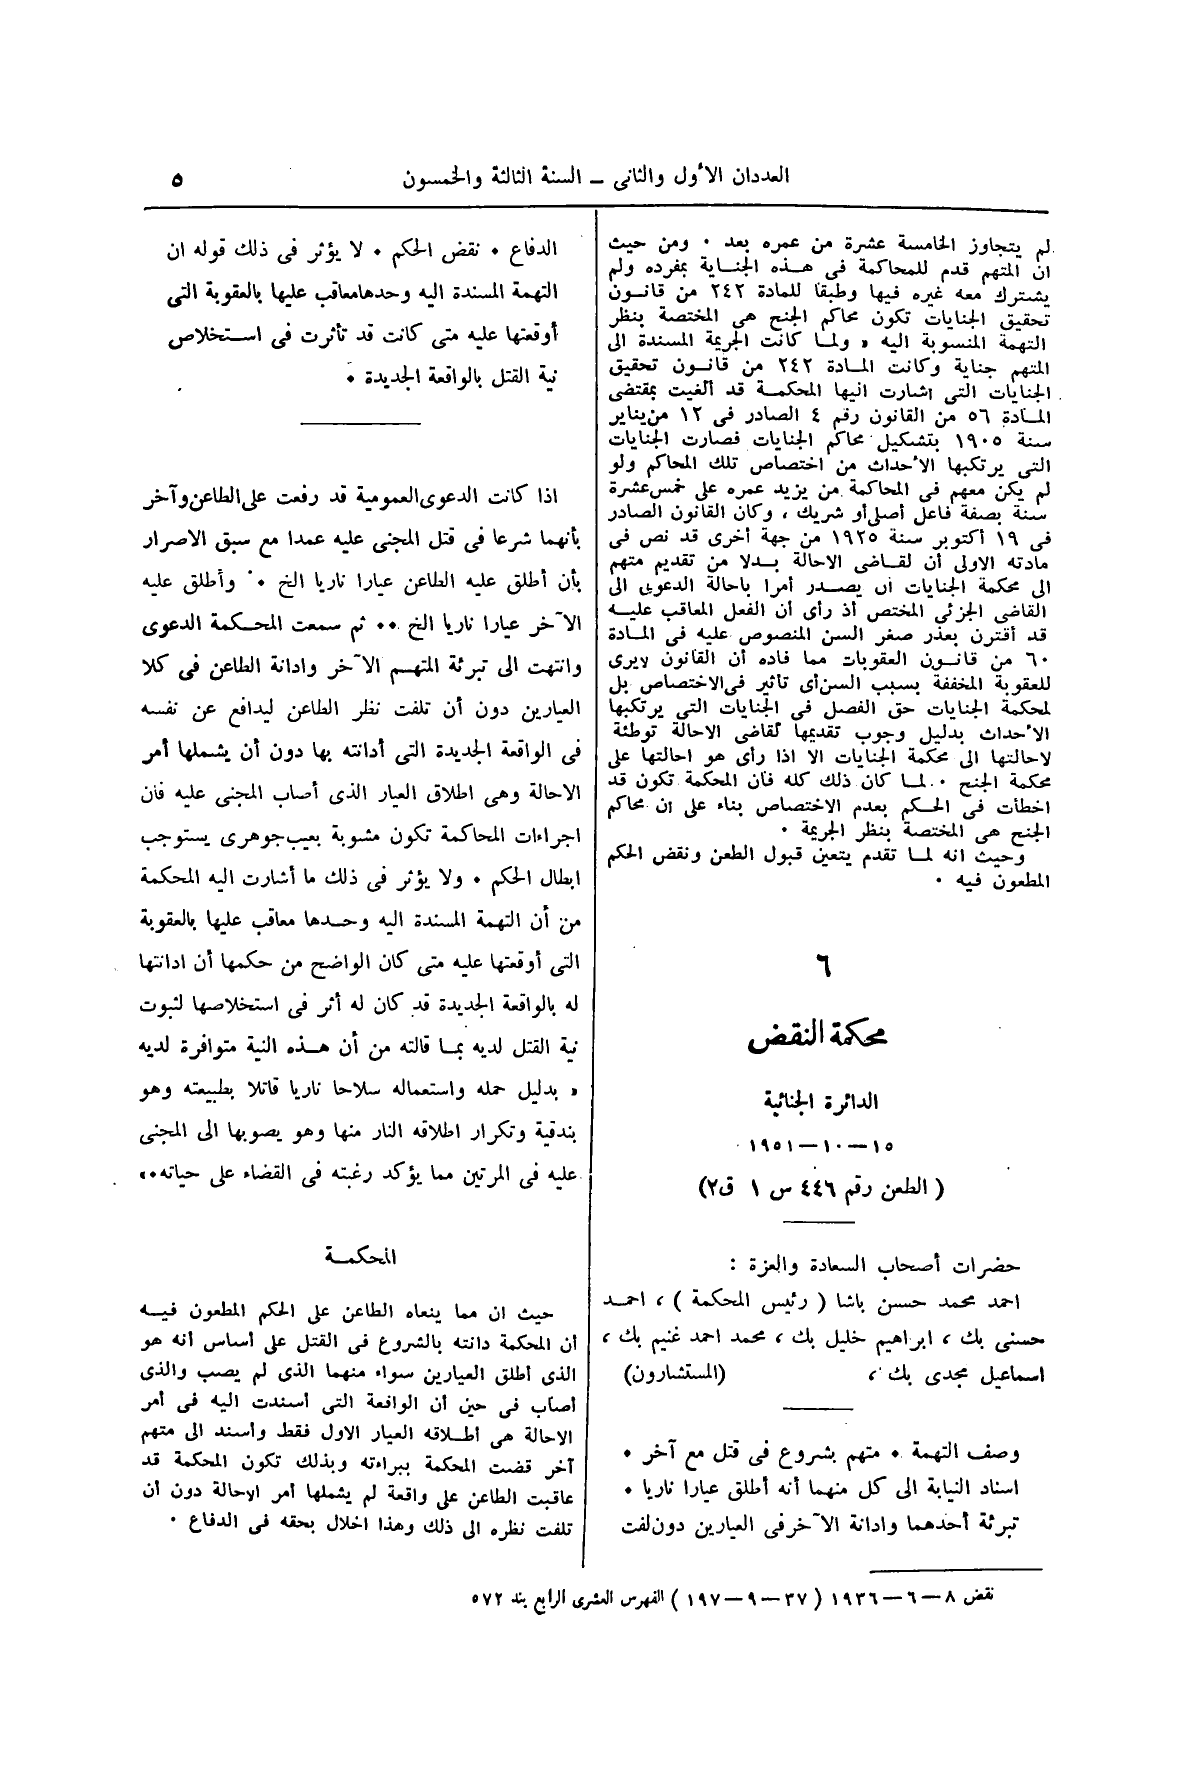 العددان الأول والثانى – السنة الثالثة والخمسون
٥
لم يتجاوز الخامسة عشرة من عمره بعد . ومن حيث
ان المتهم قدم للمحاكمة فى هذه الجناية بمفرده ولم
يشترك معه غيره فيها وطبقا للمادة ٢٤٢ من قانون
تحقيق الجنايات تكون محاكم الجنح هى المختصة بنظر
التهمة المنسوبة اليه » ولما كانت الجريمة المسندة الى
المتهم جناية وكانت المادة ٢٤٢ من قانون تحقيق
الجنايات التى اشارت اليها المحكمة قد ألغيت بمقتضى
المادة ٥٦ من القانون رقم ٤ الصادر فى ١٢ من يناير
سنة ١٩٠٥ بتشكيل محاكم الجنايات فصارت الجنايات
التى يرتكبها الأحداث من اختصاص تلك المحاكم ولو
لم يكن معهم فى المحاكمة من يزيد عمره على خمس عشرة
سنة بصفة فاعل أصلى أو شريك ، وكان القانون الصادر
فى ١٩ أكتوبر سنة ١٩٢٥ من جهة أخرى قد نص فى
مادته الاولى أن لقاضى الاحالة بدلا من تقديم متهم
الى محكمة الجنايات أن يصدر أمرا باحالة الدعوى الى
القاضى الجزئى المختص اذ رأى أن الفعل المعاقب عليه
قد أقترن بعذر صغر السن المنصوص عليه فى المادة
٦٠ من قانون العقوبات مما فاده أن القانون لايرى
للعقوبة المخففة بسبب السن أى تأثير فى الاختصاص بل
لمحكمة الجنايات حق الفصل فى الجنايات التى يرتكبها
الأحداث بدليل وجوب تقديمها لقاضى الاحالة توطئة
لاحالتها الى محكمة الجنايات الا اذا رأى هو احالتها على
محكمة الجنح . لما كان ذلك كله فأن المحكمة تكون قد
اخطأت فى الحكم بعدم الاختصاص بناء على ان محاكم
الجنح هى المختصة بنظر الجريمة .
وحيث انه لما تقدم يتعين قبول الطعن ونقض الحكم
المطعون فيه .
٦
محكمة النقض
الدائرة الجنائية
١٥ – ١٠ – ١٩٥١
( الطعن رقم ٤٤٦ س ١ ق٢)
حضرات أصحاب السعادة والعزة :
احمد محمد حسن باشا ( رئيس المحكمة ) ، احمد
حسنى بك ، ابراهيم خليل بك ، محمد احمد غنيم بك ،
اسماعيل مجدى بك ، (المستشارون)
وصف التهمة . متهم بشروع فى قتل مع آخر .
اسناد النيابة الى كل منهما أنه أطلق عيارا ناريا .
تبرئة أحدهما وادانة الآخر فى العيارين دون لفت
الدفاع . نقض الحكم . لا يؤثر فى ذلك قوله ان
التهمة المسندة اليه وحدها معاقب عليها بالعقوبة التى
أوقعتها عليه متى كانت قد تأثرت فى استخلاص
نية القتل بالواقعة الجديدة .
اذا كانت الدعوى العمومية قد رفعت على الطاعن وآخر
بأنهما شرعا فى قتل المجنى عليه عمدا مع سبق الاصرار
بأن أطلق عليه الطاعن عيارا ناريا الخ .. وأطلق عليه
الآخر عيارا ناريا الخ .. ثم سمعت المحكمة الدعوى
وانتهت الى تبرئة المتهم الآخر وادانة الطاعن فى كلا
العيارين دون أن تلفت نظر الطاعن ليدافع عن نفسه
فى الواقعة الجديدة التى أدانته بها دون أن يشملها أمر
الاحالة وهى اطلاق العيار الذى أصاب المجنى عليه فان
اجراءات المحاكمة تكون مشوبة بعيب جوهرى يستوجب
ابطال الحكم . ولا يؤثر فى ذلك ما أشارت اليه المحكمة
من أن التهمة المسندة اليه وحدها معاقب عليها بالعقوبة
التى أوقعتها عليه متى كان الواضح من حكمها أن ادانتها
له بالواقعة الجديدة قد كان له أثر فى استخلاصها لثبوت
نية القتل لديه بما قالته من أن هذه النية متوافرة لديه
« بدليل حمله واستعماله سلاحا ناريا قاتلا بطبيعته وهو
بندقية وتكرار اطلاقه النار منها وهو يصوبها الى المجنى
عليه فى المرتين مما يؤكد رغبته فى القضاء على حياته.»
المحكمة
حيث ان مما ينعاه الطاعن على الحكم المطعون فيه
أن المحكمة دانته بالشروع فى القتل على أساس أنه هو
الذى أطلق العيارين سواء منهما الذى لم يصب والذى
أصاب فى حين أن الواقعة التى أسندت اليه فى أمر
الاحالة هى أطلاقه العيار الاول فقط وأسند الى متهم
آخر قضت المحكمة ببراءته وبذلك تكون المحكمة قد
عاقبت الطاعن على واقعة لم يشملها أمر الاحالة دون أن
تلفت نظره الى ذلك وهذا اخلال بحقه فى الدفاع .
نقض ٨ – ٦ – ١٩٣٦ ( ٣٧ – ٩ – ١٩٧ ) الفهرس العشرى الرابع بند ٥٧٢